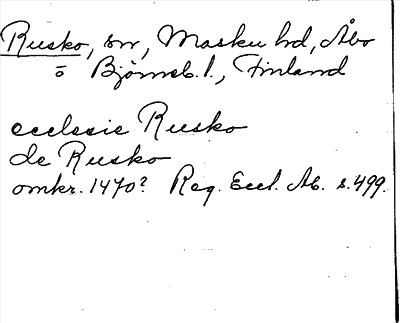 Rusko, sn, Masku hd, Åbo
o Björneb. l., Finland
ecclesie Rusko
de Rusko
omkr. 1470? Reg. Eccl. Ab. s. 499.